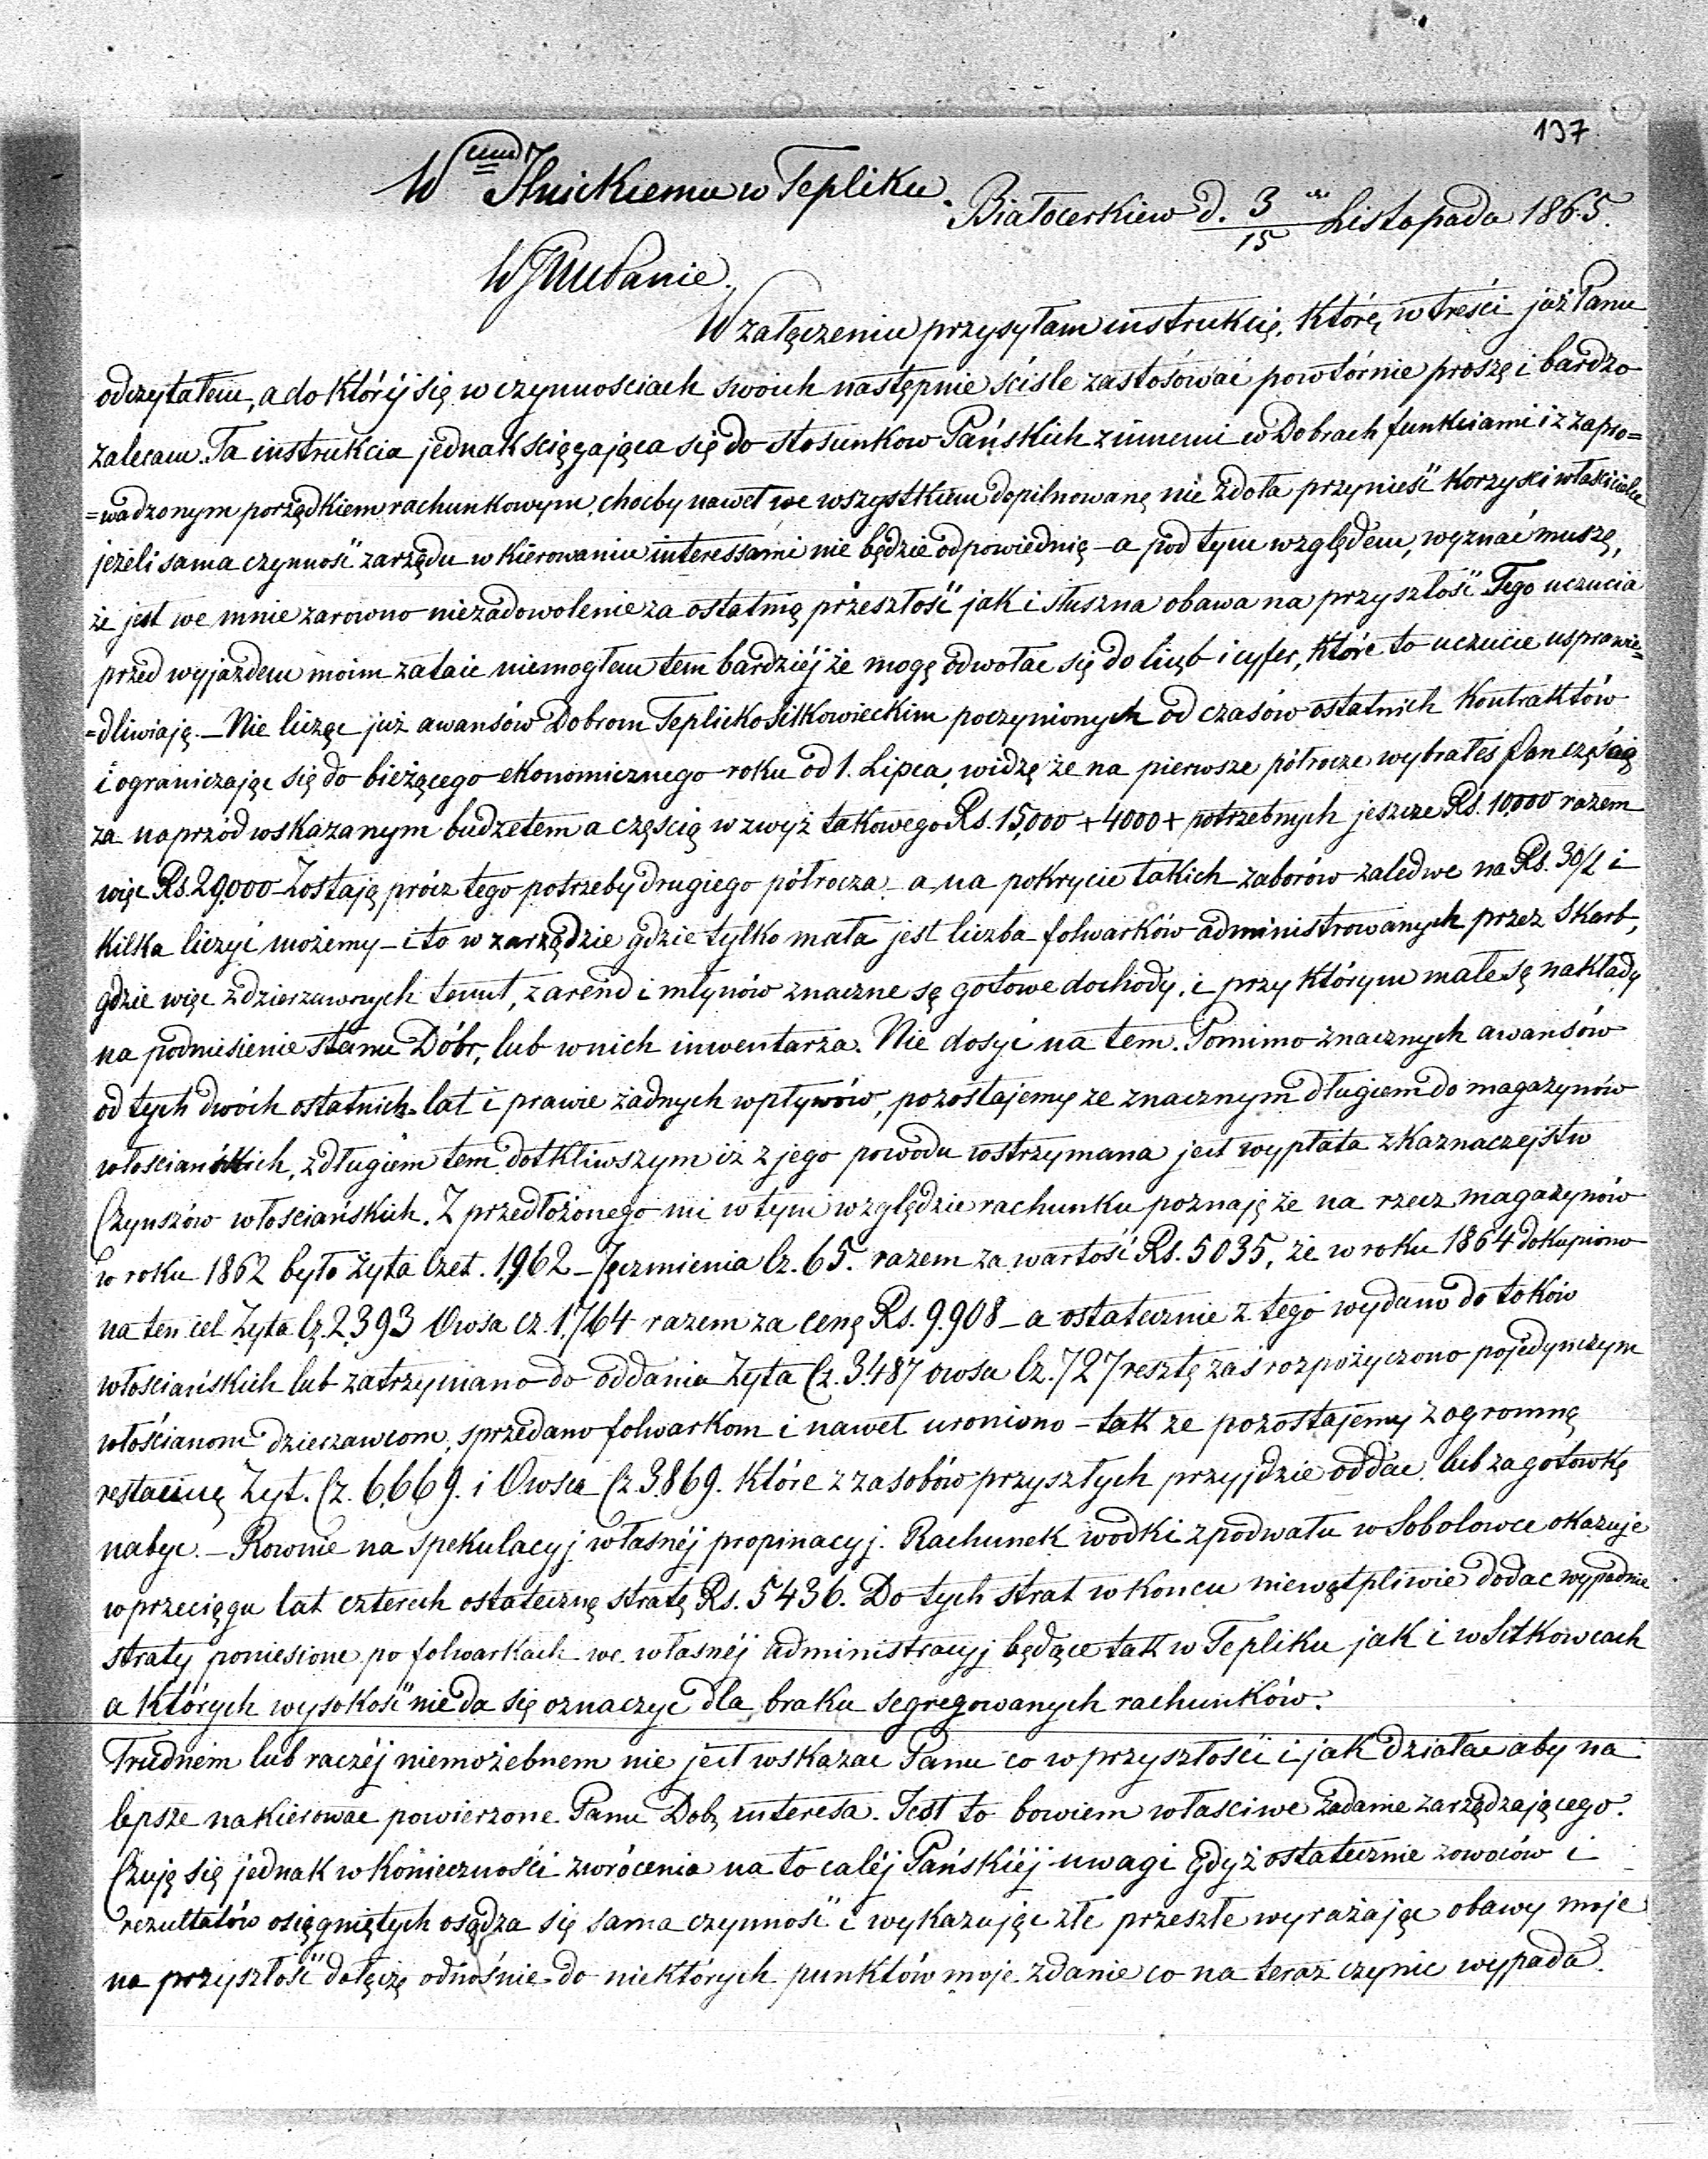 137
W<sup>emu</sup> Ilnickiemu w Tepliku
Białocerkiew d. 3/15 Listopada 1865.
WJMu Panie
W załączeniu przysyłam instrukcię, którę w treści już Panu
odczytałem, a do któréj się w czynnosciach swoich następnie ściśle zastósować powtórnie proszę i bardzo
zalecam. Ta instrukcia jednak ściągająca się do stosunkow Pańskich z innemi w Dobrach funkciami i z zapro=
=wadzonym porządkiem rachunkowym, choćby nawet we wszystkiem dopilnowanę nie zdoła przynieść korzyści właścicielce
jeżeli sama czynność zarządu w kierowaniu interessami nie będzie odpowiednię – a pod tym względem, wyznać muszę,
że jest we mnie zarowno niezadowolenie za ostatnię przeszłość jak i słuszna obawa na przyszłość. Tego uczucia
przed wyjazdem moim zataic niemogłem tem bardziéj że mogę odwołac się do liczb i cyfer, które to uczucie usprawie=
=dliwiaję. – Nie liczęc już awansów Dobrom Teplicko Sitkowieckim poczynionych od czasów ostatnich Kontraktów
i ograniczając się do bieżącego ekonomicznego roku od 1. Lipca, widzę że na pierwsze półrocze wybrałeś Pan częścią
za naprzód wskazanym budżetem a częścią wzwyż takowego Rs. 15,000 + 4000 + potrzebnych jeszcze Rs. 10,000 razem
więc Rs. 29,000 – Zostaję prócz tego potrzeby drugiego półrocza – a na pokrycie takich zaborów zaledwe na Rs. 30/t i
kilka liczyć możemy – i to w zarządzie gdzie tylko mała jest liczba folwarków administrowanych przez Skarb,
gdzie więc z dzierzawnych tenut, z arend i młynów znaczne są gotowe dochody, i przy którym małe są nakłady
na podniesienie stanu Dóbr, lub w nich inwentarza. Nie dosyć na tem. Pomimo znacznych awansów
od tych dwóch ostatnich lat i prawie żadnych wpływów, pozostajemy ze znacznym długiem do magazynów
włosciańskich, z długiem tem dotkliwszym iż z jego powodu wstrzymana jest wypłata z Kaznaczejstw
Czynszów włościańskich. Z przedłożonego mi w tym względzie rachunku poznaję że na rzecz magazynów
w roku 1862 było Żyta Czet. 1,962 – Jęczmienia Cz. 65. razem za wartość Rs. 5035, że w roku 1864 dokupiono
na ten cel Żyta Cz. 2,393 Owsa cz. 1,764 razem za cenę Rs. 9.908 – a ostatecznie z tego wydano do toków
włościańskich lub zatrzymano do oddania Żyta Cz. 3.487 owsa Cz. 727 resztę zaś rozpożyczono pojedynczym
włościanom dzierzawcom, sprzedano folwarkom i nawet uroniono – tak ze pozostajemy z ogromnę
restancię Żyt. Cz. 6,669. i Owsa Cz. 3.869. które z zasobów przyszłych przyjdzie oddac, lub za gotówkę
nabyc. – Rownie na spekulacyj własnéj propinacyj. Rachunek wodki z podwału w Sobolowce okazuje
w przecięgu lat czterech ostatecznę stratę Rs. 5436. Do tych strat w koncu niewątpliwie dodac wypadnie
straty poniesione po folwarkach we własnéj administracyj będące tak w Tepliku jak i w Sitkowcach
a których wysokość nie da się oznaczyc dla braku segregowanych rachunków.
Trudném lub raczéj niemożebnem nie jest wskazac Panu co w przyszłości i jak działac aby na
lepsze nakierowac powierzone Panu Dobr interesa. Jest to bowiem własciwe zadanie zarządzającego.
Czuję się jednak w konieczności zwrócenia na to całéj Pańskiéj uwagi gdyż ostatecznie z owoców i
rezultatów osięgniętych osądza się sama czynność i wykazujęc złe przeszłe wyrażając obawy moje
na przyszłość dołączę odnośnie do niektórych punktów moje zdanie co na teraz czynic wypada.